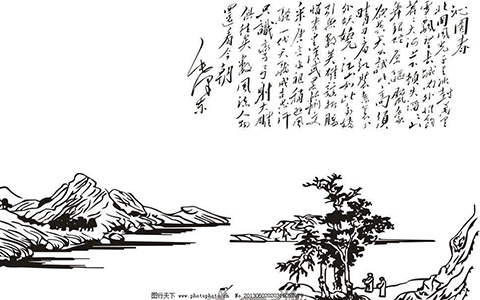 沁园春
北国风光千里冰封万里
雪飘望长城内外惟余
莽莽大河上下顿失滔滔山
舞银蛇原驱腊象
欲与天公试比高须
晴日看红装素裹分
外妖娆江山如此多娇
引无数英雄竞折腰
惜秦皇汉武略输文
采唐宗宋祖稍逊风
骚一代天骄成吉思汗
只识弯弓射大雕
俱往矣数风流人物
还看今朝
毛泽东
图行天下 www.photophoto.cn